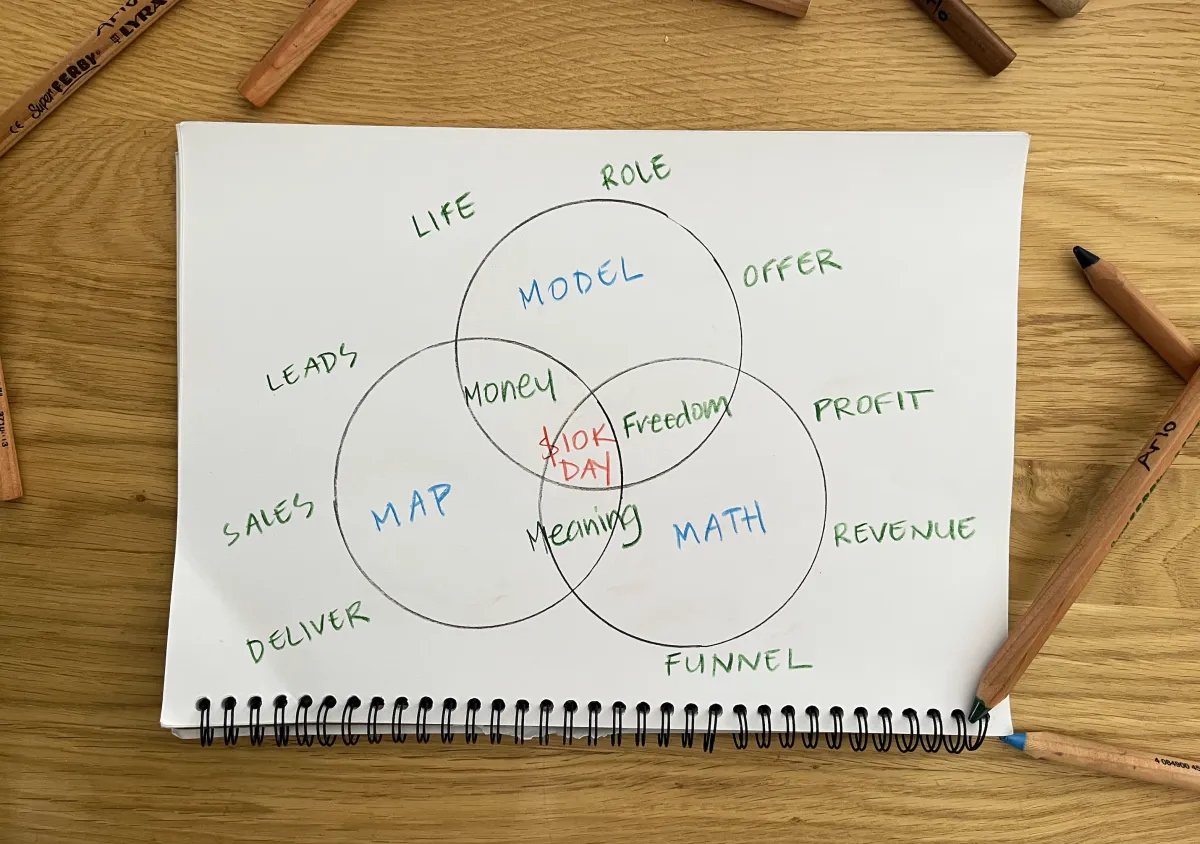 Arlo
Super FERBY® LYRA
CE
Arlo
ROLE
LIFE
MODEL
OFFER
LEADS
Money
Freedom
PROFIT
$10K
DAY
Arlo
MAP
SALES
Meaning
MATH
REVENUE
DELIVER
FUNNEL